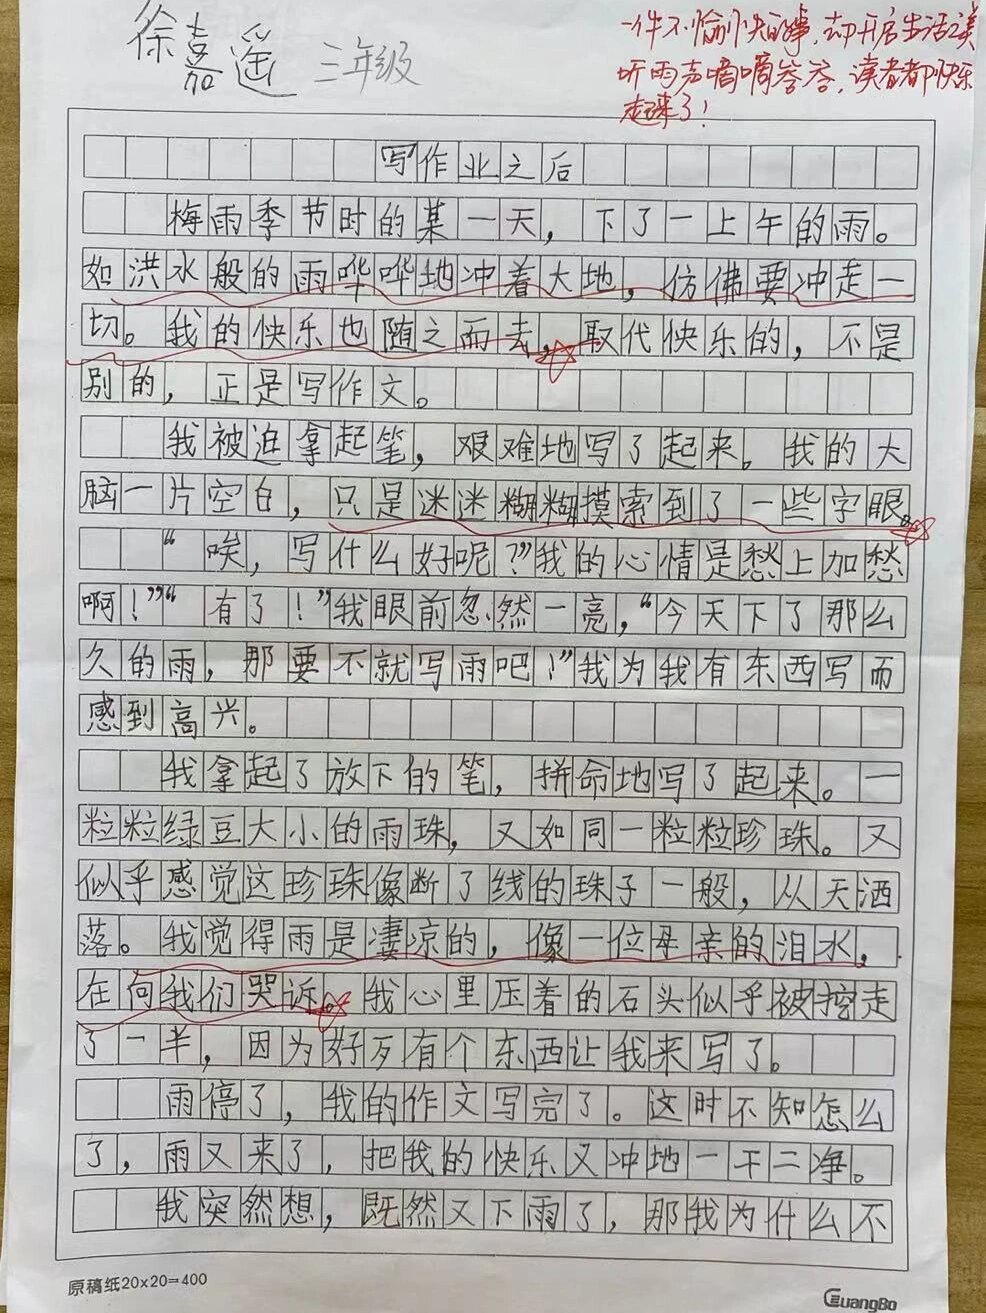 徐嘉遥 三年级
一件不愉快的事,却开启生活之美
听雨声嘀嘀答答,读者都快乐
起来了!
写作业之后
梅雨季节时的某一天,下了一上午的雨。
如洪水般的雨哗哗地冲着大地,仿佛要冲走一
切。我的快乐也随之而去,取代快乐的,不是
别的,正是写作文。
我被迫拿起笔,艰难地写了起来。我的大
脑一片空白,只是迷迷糊糊摸索到了一些字眼。
“唉,写什么好呢?”我的心情是愁上加愁
啊!”“有了!”我眼前忽然一亮,“今天下了那么
久的雨,那要不就写雨吧!”我为我有东西写而
感到高兴。
我拿起了放下的笔,拼命地写了起来。一
粒粒绿豆大小的雨珠,又如同一粒粒珍珠。又
似乎感觉这珍珠像断了线的珠子一般,从天洒
落。我觉得雨是凄凉的,像一位母亲的泪水,
在向我们哭诉。我心里压着的石头似乎被挖走
了一半,因为好歹有个东西让我来写了。
雨停了,我的作文写完了。这时不知怎么
了,雨又来了,把我的快乐又冲地一干二净。
我突然想,既然又下雨了,那我为什么不
原稿纸20×20=400
GuangBo